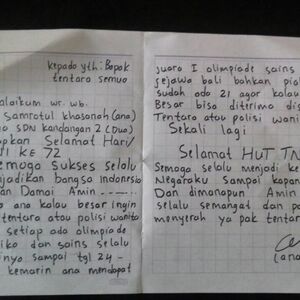 kepado yth: Bapak
tentara semuo
alaikum wr. wb.
samrotul khasonah (ana)
SDN kandangan 2 (Duo)
apkan Selamat Hari
NI KE 72
emoga Sukses selalu
njadikan bangsa Indonesia
an Damai Amin
ana kalau besar ingin
tentara atau polisi wanita
setiap ada olimpiade
iko dan sains selalu
inyo sampai tgl 24 -
kemarin ana mendapat
juaro I olimpiade sains
sejawa bali bahkan pial
sudah ado 21 agar kalau
Besar bisa diterimo di
Tentaro atau polisi wani
Sekali lagi
Selamat HUT TN
Semoga selalu menjadi ke
Negaraku sampai kapan
Dan dimanapun Amin
selalu semangat dan pa
menyerah ya pak tentar
(ana